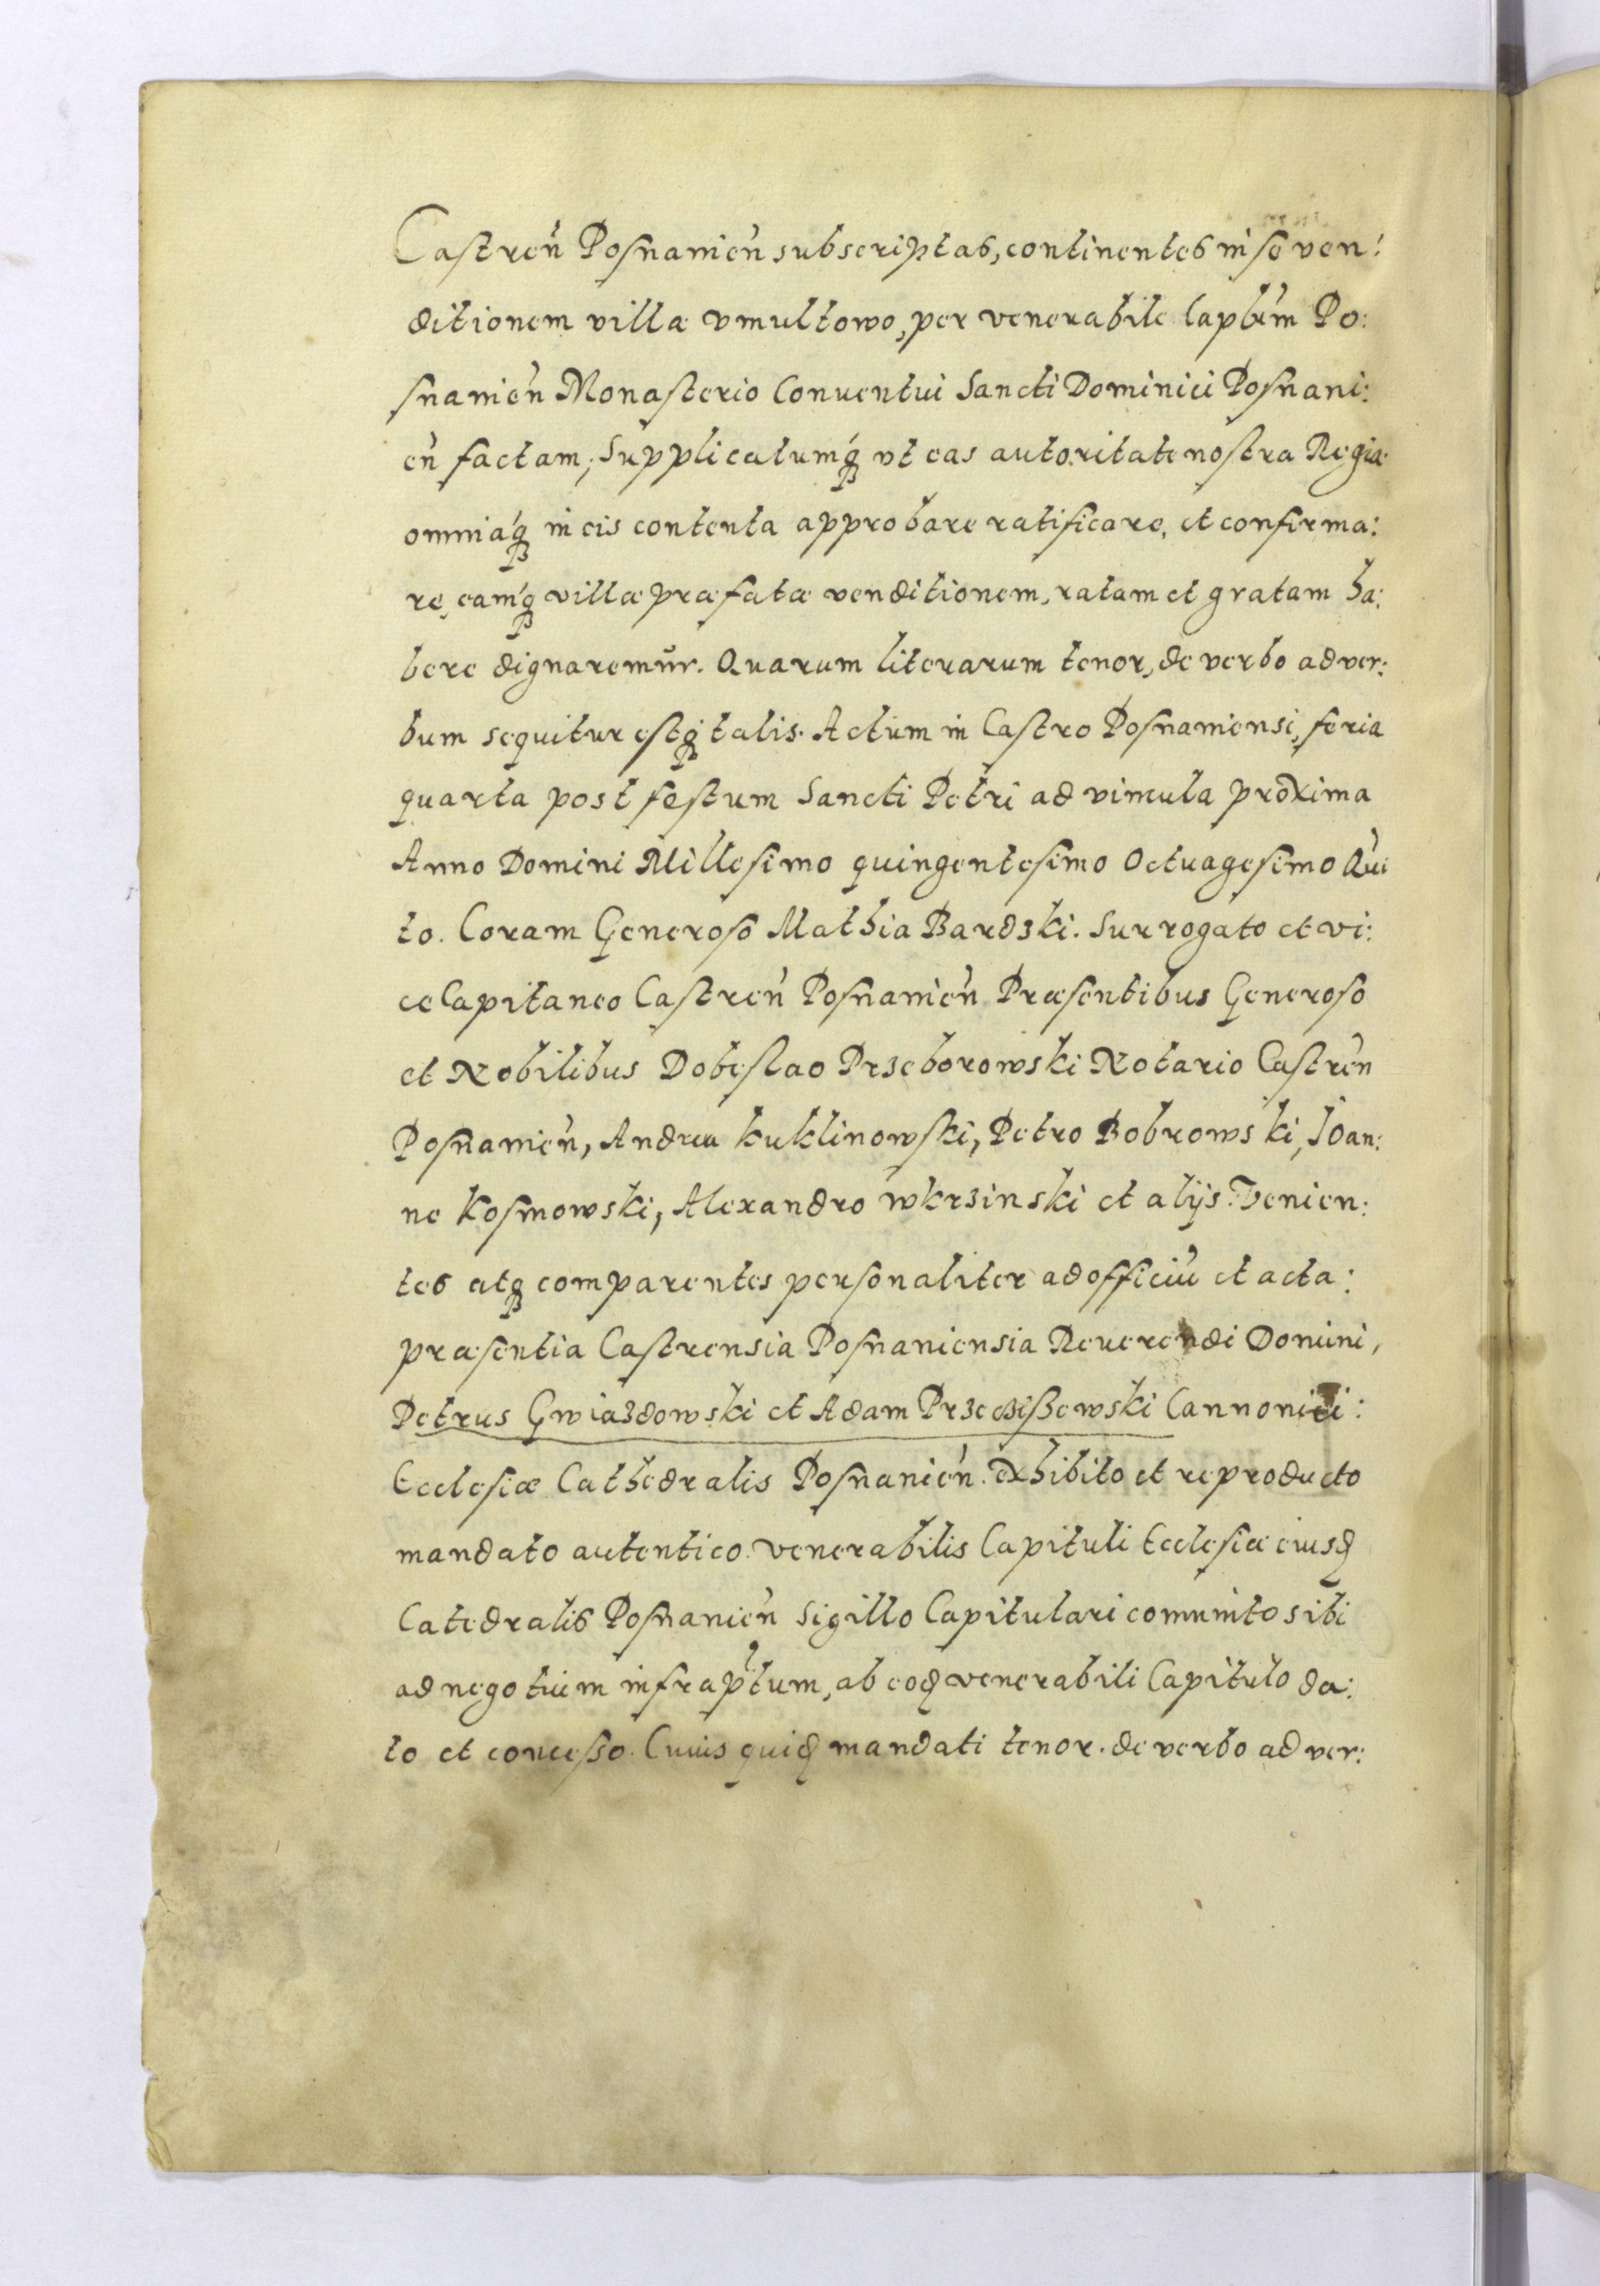 Castreń Posnanień subscriptas, continentes in se ven:
ditionem villæ vmultowo, per venerabile Capłum Po:
snanień Monasterio Conuentui Sancti Dominici Posnani:
eń factam; Supplicatumq́ꝫ vt eas autoritate nostra Regia
omniaq́ꝫ in eis contenta approbare ratificare, et confirma:
re, eamq́ꝫ villæ præfatæ venditionem, ratam et gratam ha:
bere dignaremur. Quarum literarum tenor, de verbo ad ver:
bum sequitur estqꝫ talis. Actum in Castro Posnaniensi, feria
quarta post festum Sancti Petri ad vincula proxima
Anno Domini Millesimo quingentesimo Octuagesimo Qui
to. Coram Generoso Mathia Bardzki. Surrogato et vi:
ce Capitaneo Castreń Posnanień Præsentibus Generoso
et Nobilibus Dobeslao Przeborowski Notario Castreń
Posnanień, Andrea Kuklinowski, Petro Bobrowski, Ioan:
ne Kosmowski, Alexandro Wkrzinski et alijs. Venien:
tes atqꝫ comparentes personaliter ad officiú et acta:
præsentia Castrensia Posnaniensia Reuerendi Domini,
Petrus Gwiazdowski et Adam Przecißewski Cannonici:
Ecclesiæ Cathedralis Posnanień. exhibito et reproducto
mandato autentico venerabilis Capituli Ecclesiæ eiusđ
Catedralis Posnanień Sigillo Capitulari comunito sibi
ad negotium infraptum, ab eođ venerabili Capitulo da:
to et concesso. Cuius quiđ mandati tenor. de verbo ad ver: